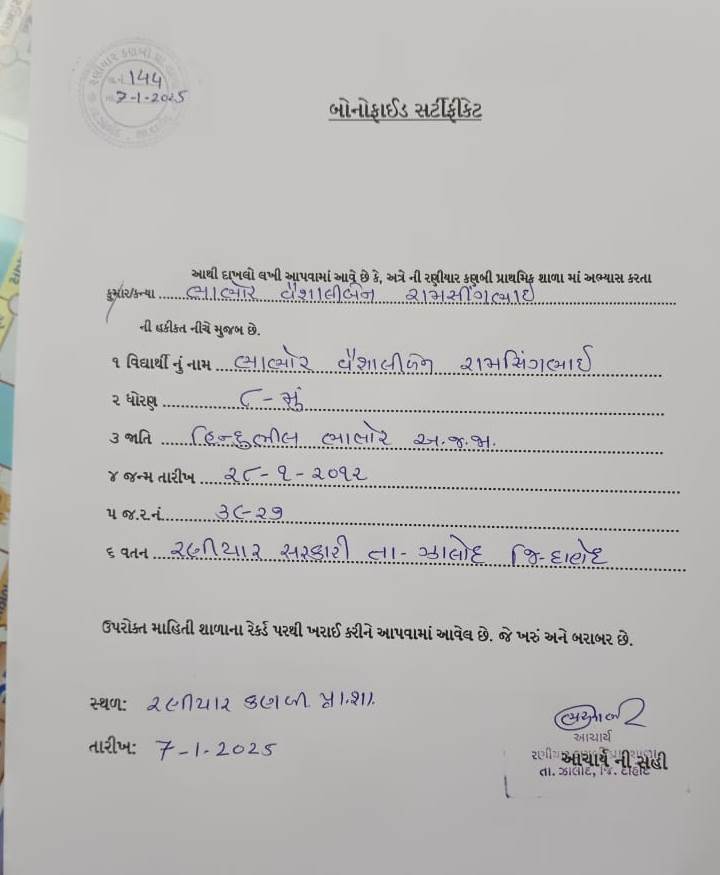 રણીયાર કણબી પ્રા
144
7-1-2025
બોનોફાઈડ સર્ટીફીકેટ
આથી દાખલો લખી આપવામાં આવે છે કે, અત્રે ની રણીયાર કણબી પ્રાથમિક શાળા માં અભ્યાસ કરતા
કુમાર/કન્યા ભાભોર વૈશાલીબેન રામસીંગભાઈ
ની હકીકત નીચે મુજબ છે.
૧ વિદ્યાર્થી નું નામ ભાભોર વૈશાલીબેન રામસિંગભાઈ
૨ ધોરણ ૮ - મું
૩ જાતિ હિન્દુભીલ ભાભોર અ.જ.જા.
૪ જન્મ તારીખ ૨૮-૧-૨૦૧૨
૫ જ.ર.નં. ૩૯-૨૭
૬ વતન રણીયાર સરકારી તા- ઝાલોદ જિ-દાહોદ
ઉપરોક્ત માહિતી શાળાના રેકર્ડ પરથી ખરાઈ કરીને આપવામાં આવેલ છે. જે ખરું અને બરાબર છે.
સ્થળ: રણીયાર કણબી પ્રા.શા.
તારીખ: 7-1-2025
આચાર્ય
આચાર્ય ની સહી
તા. ઝાલોદ, જિ. દાહોદ